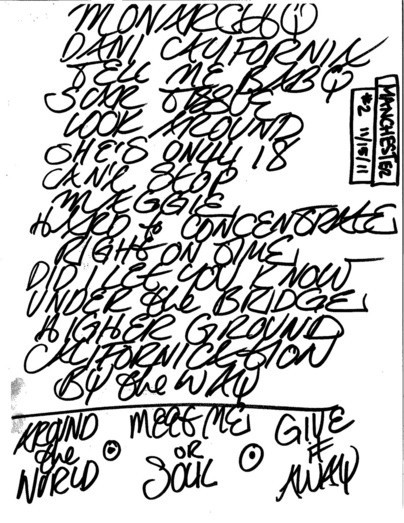 MONARCHY
DANI CALIFORNIA
TELL ME BABY
SCAR TISSUE
LOOK AROUND
SHE'S ONLY 18
CAN'T STOP
MAGGIE
HARD to CONCENTRATE
RIGHT ON TIME
DID I LET YOU KNOW
UNDER the BRIDGE
HIGHER GROUND
CALIFORNICATION
BY the WAY
AROUND the WORLD
MEET ME OR SOUL
GIVE IT AWAY
MANCHESTER
#2 11/15/11